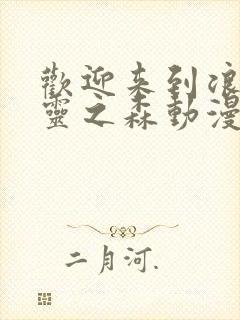 歡迎来到浪
靈之森動漫
二月河.